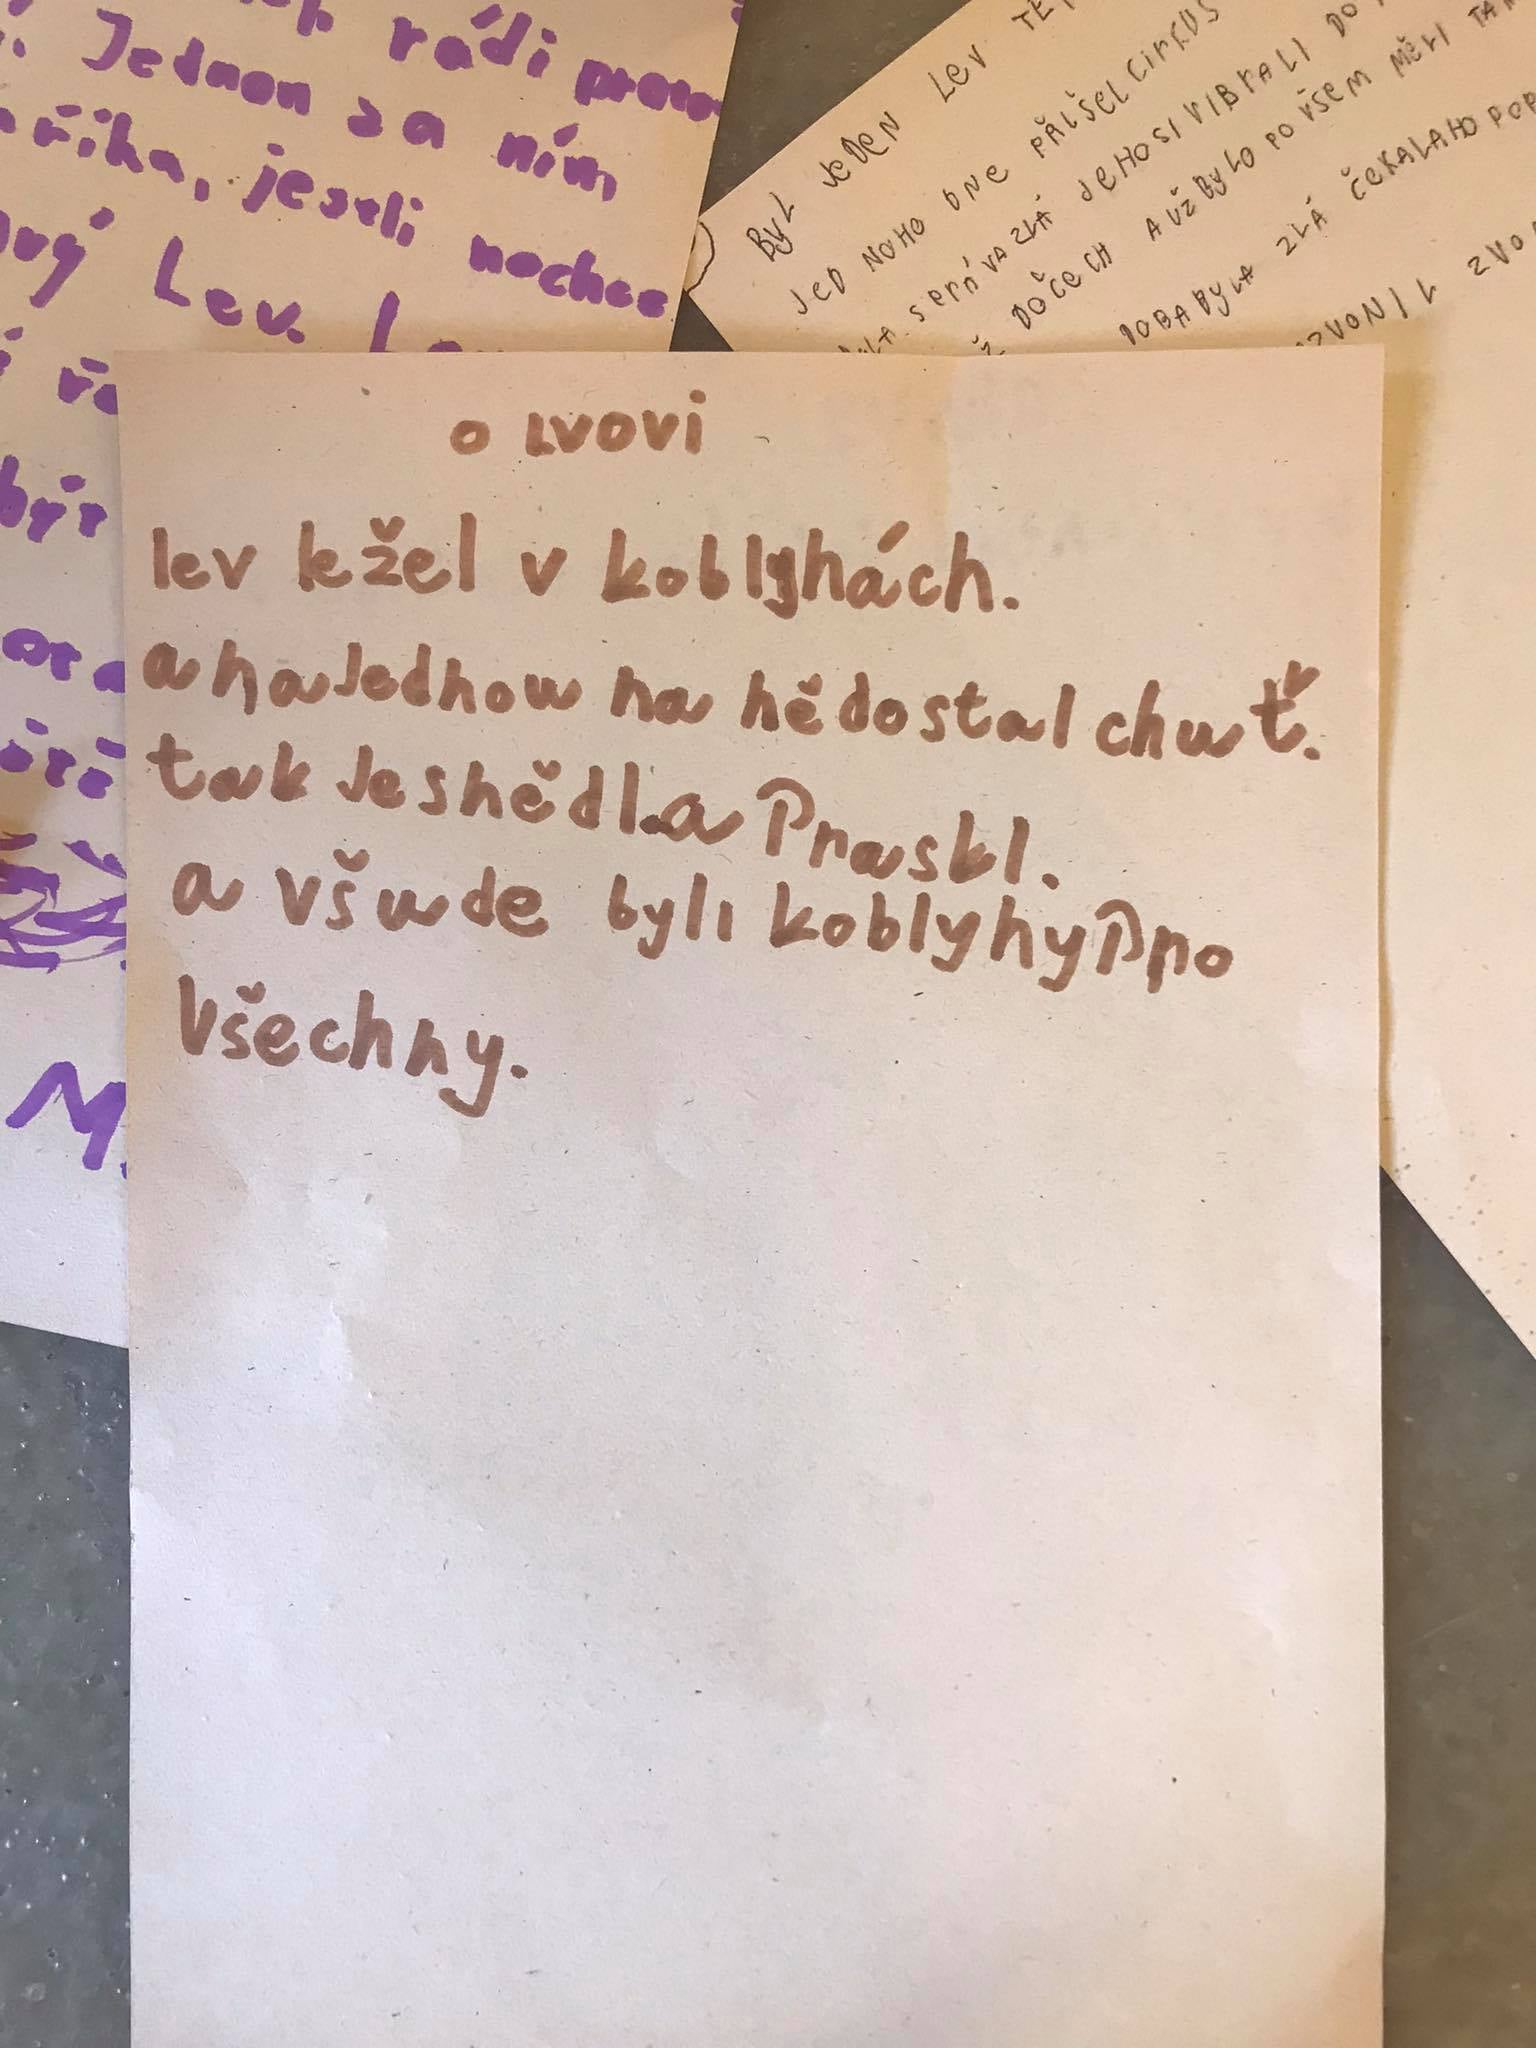 rádi
Jednou za ním
jestli nechce
Lev.
BYL JEDEN LEV
JED NOHO DNE PŘIŠEL CIRKUS
ZLÁ JEHOSI VIBRALI DO
DOČECH A UŽ BYLO PO VŠEM MĚLI
DOBA BYLA ZLÁ ČEKALAHO
O LVOVI
lev ležel v koblyhách.
a najednou na ně dostal chuť.
tak Je snědl a Praskl.
a všude byli koblyhy Pro
Všechny.